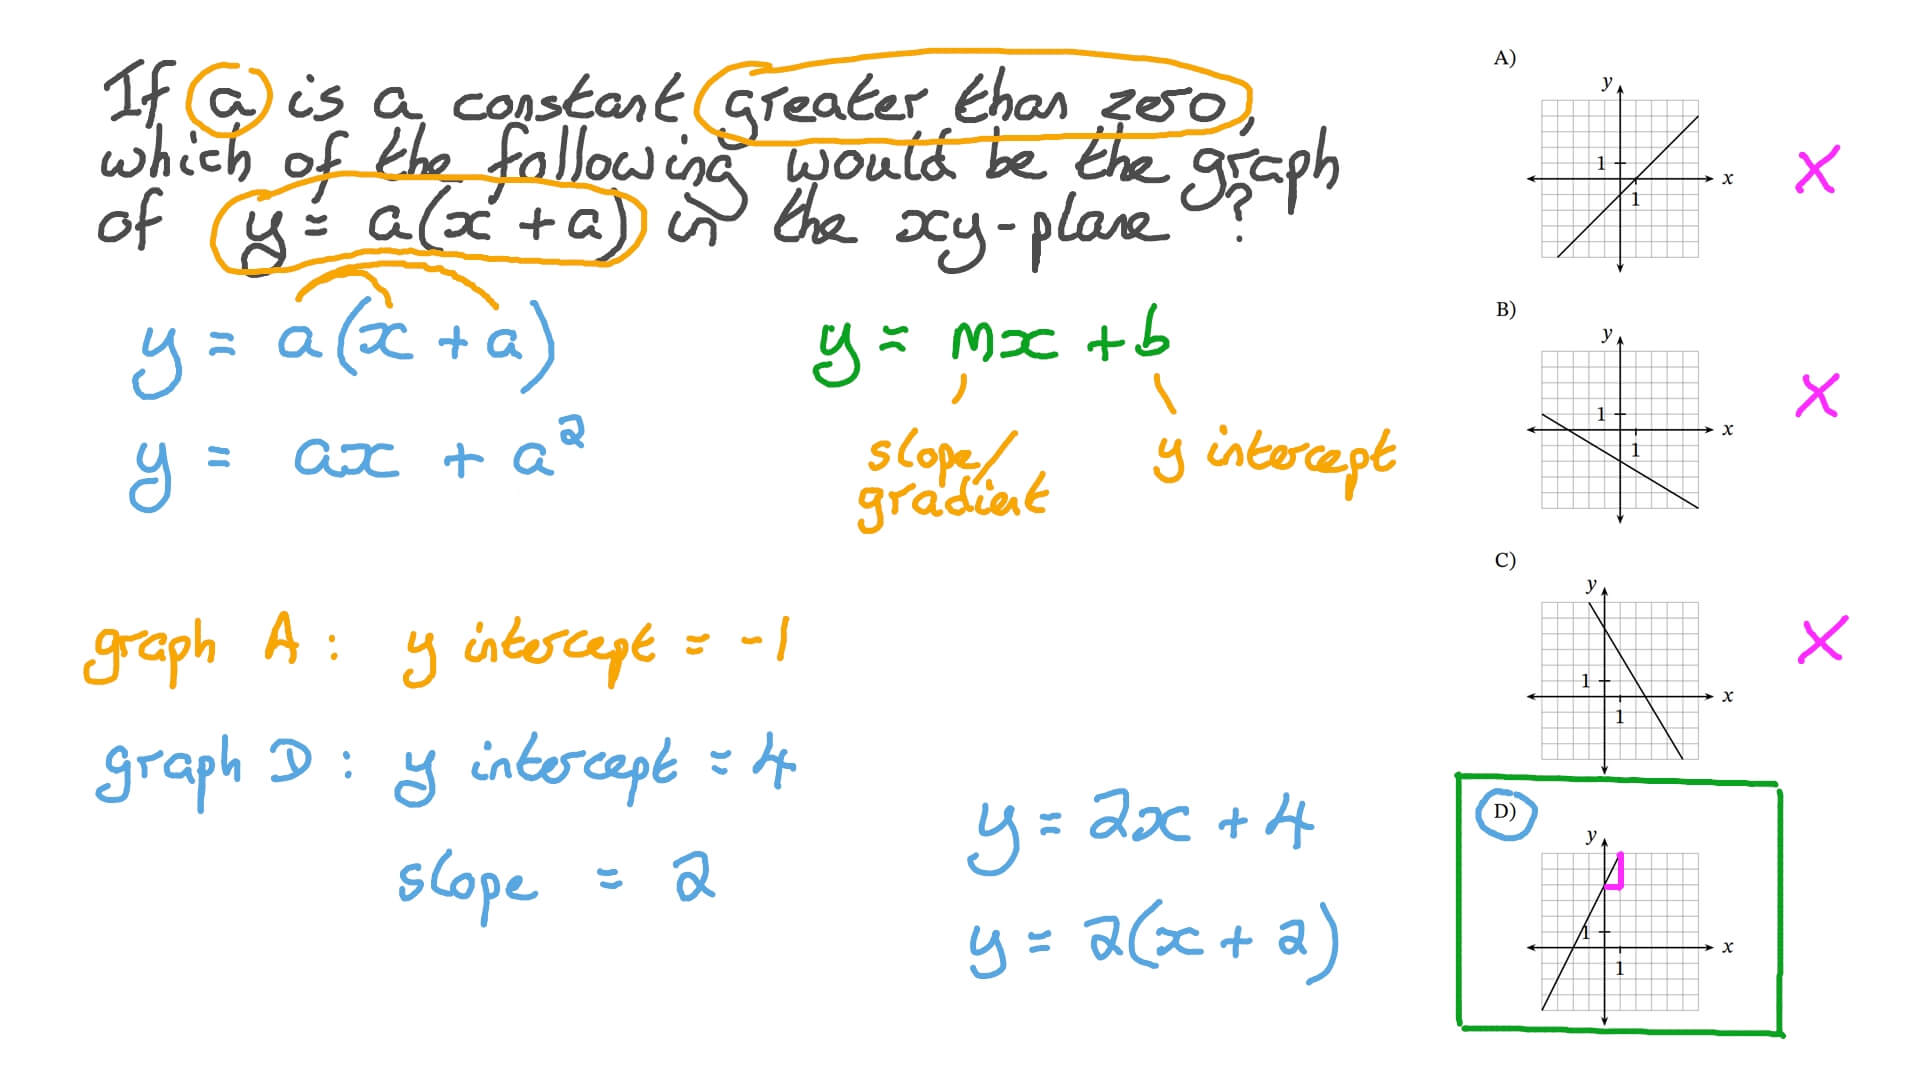 If a is a constant greater than zero,
which of the following would be the graph
of y = a(x + a) in the xy-plane ?
y = a(x + a)
y = ax + a²
y = mx + b
slope/
gradient
y intercept
graph A : y intercept = -1
graph D : y intercept = 4
slope = 2
y = 2x + 4
y = 2(x + 2)
A)
y
1
x
1
X
B)
y
1
x
1
X
C)
y
1
x
1
X
D)
y
1
x
1